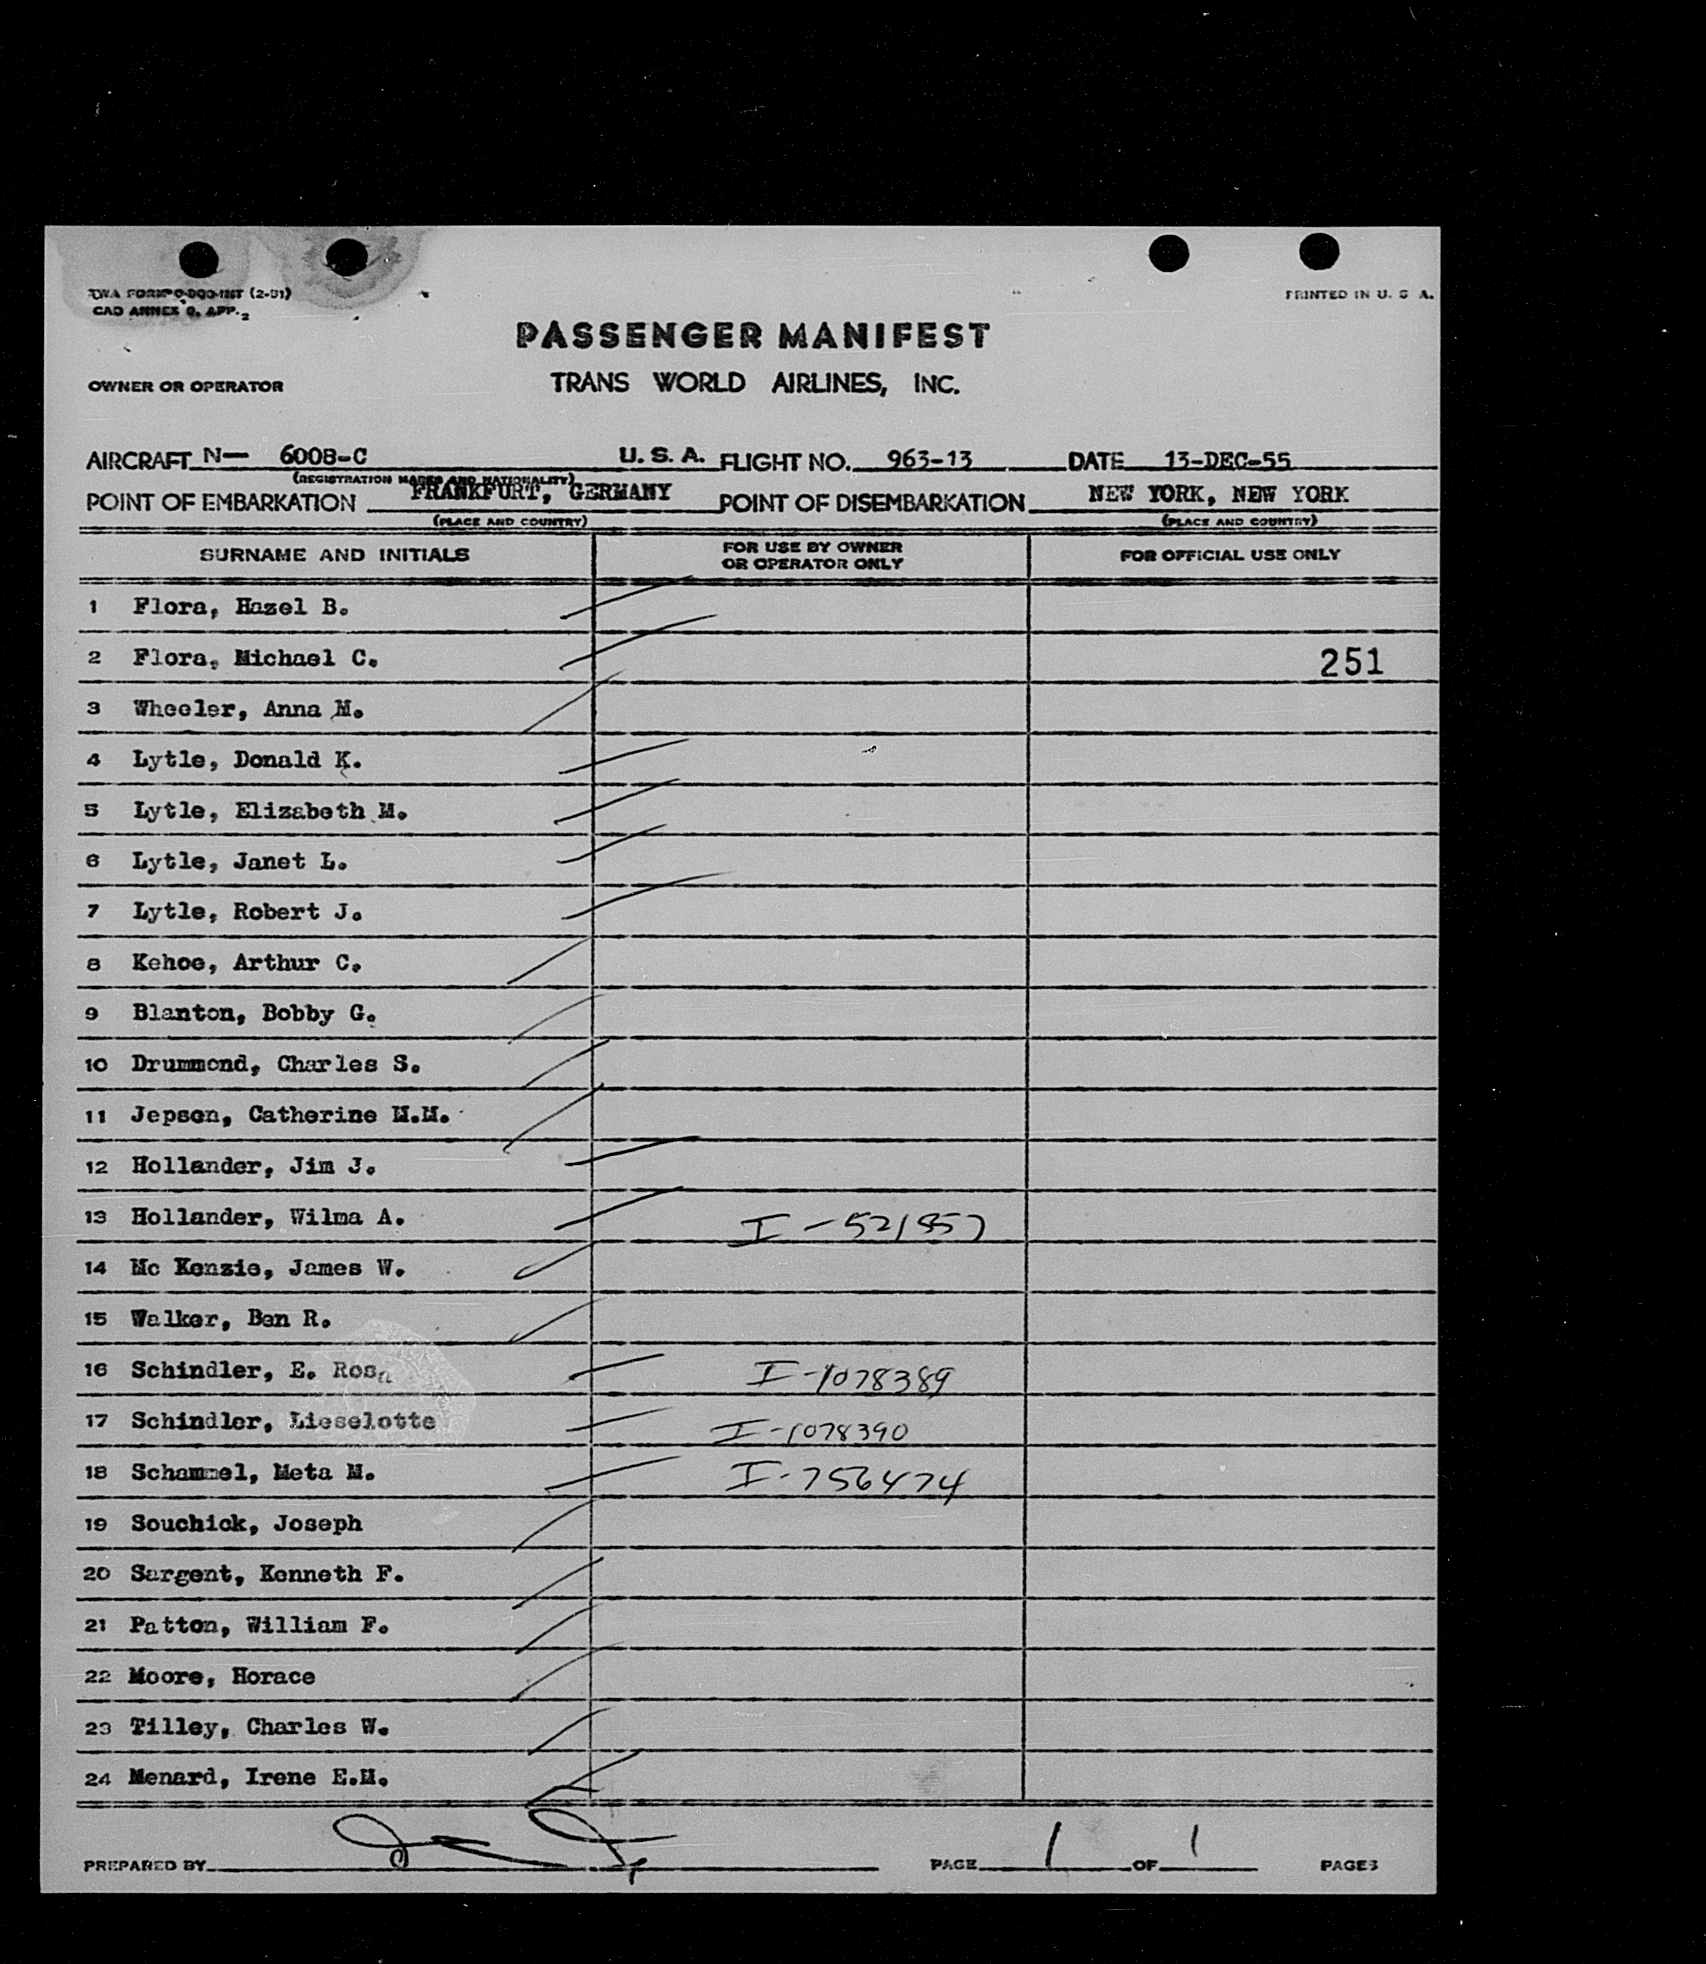 TWA FORM O-900-INT (2-51)
CAO ANNEX 9, APP. 2
PRINTED IN U. S. A.
PASSENGER MANIFEST
OWNER OR OPERATOR
TRANS WORLD AIRLINES, INC.
AIRCRAFT N— 6008-C U. S. A. FLIGHT NO. 963-13 DATE 13-DEC-55
(REGISTRATION MARKS AND NATIONALITY)
POINT OF EMBARKATION FRANKFURT, GERMANY POINT OF DISEMBARKATION NEW YORK, NEW YORK
(PLACE AND COUNTRY) (PLACE AND COUNTRY)
SURNAME AND INITIALS FOR USE BY OWNER OR OPERATOR ONLY FOR OFFICIAL USE ONLY
1 Flora, Hazel B.
2 Flora, Michael C. 251
3 Wheeler, Anna M.
4 Lytle, Donald K.
5 Lytle, Elizabeth M.
6 Lytle, Janet L.
7 Lytle, Robert J.
8 Kehoe, Arthur C.
9 Blanton, Bobby G.
10 Drummond, Charles S.
11 Jepsen, Catherine M.M.
12 Hollander, Jim J.
13 Hollander, Wilma A. I-521857
14 Mc Kenzie, James W.
15 Walker, Ben R.
16 Schindler, E. Rosa I-1078389
17 Schindler, Lieselotte I-1078390
18 Schammel, Meta M. I-756474
19 Souchick, Joseph
20 Sargent, Kenneth F.
21 Patton, William F.
22 Moore, Horace
23 Tilley, Charles W.
24 Menard, Irene E.M.
PREPARED BY PAGE 1 OF 1 PAGES